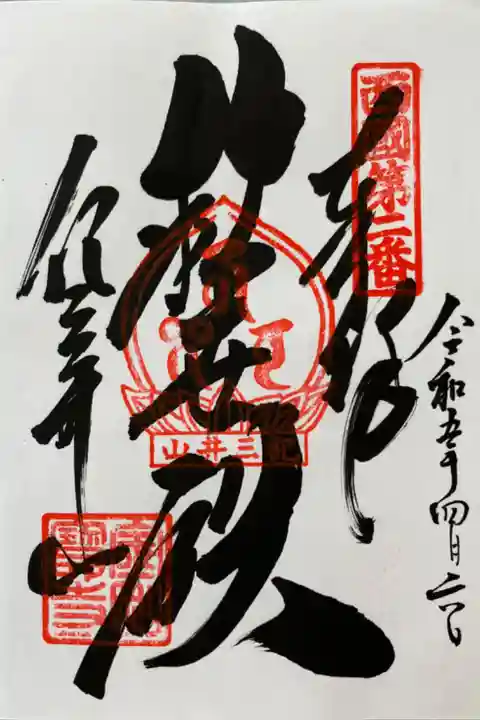 西國第二番
奉拜
令和五年四月二日
救世殿
山井三紀
紀三井山